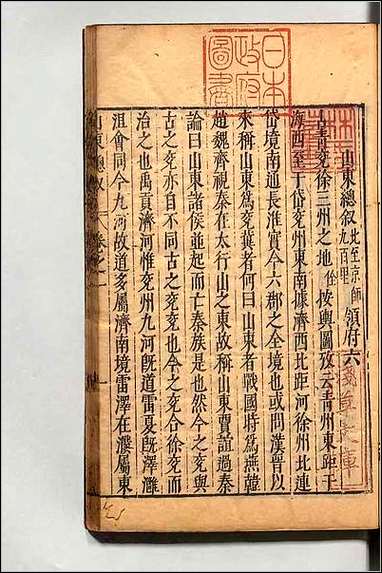 日本
政府
圖書
山東總叙 此至京師九百里 領府六
青兗徐三州之地 按輿圖攷云青州東距于
海西至于岱兗州東南據濟西北距河徐州北連
岱境南通長淮實今六郡之全境也或問漢晉以
來稱山東爲兗冀者何曰山東者戰國時爲燕韓
趙魏齊視秦在太行山之東故稱山東賈誼過秦
論曰山東諸侯並起而亡秦族是也然今之兗與
古之兗亦自不同古之兗兗也今之兗合徐兗而
治之也禹貢濟河惟兗州九河旣道雷夏旣澤灉
沮會同今九河故道多屬濟南境雷澤在濮屬東
山東總叙 卷之一